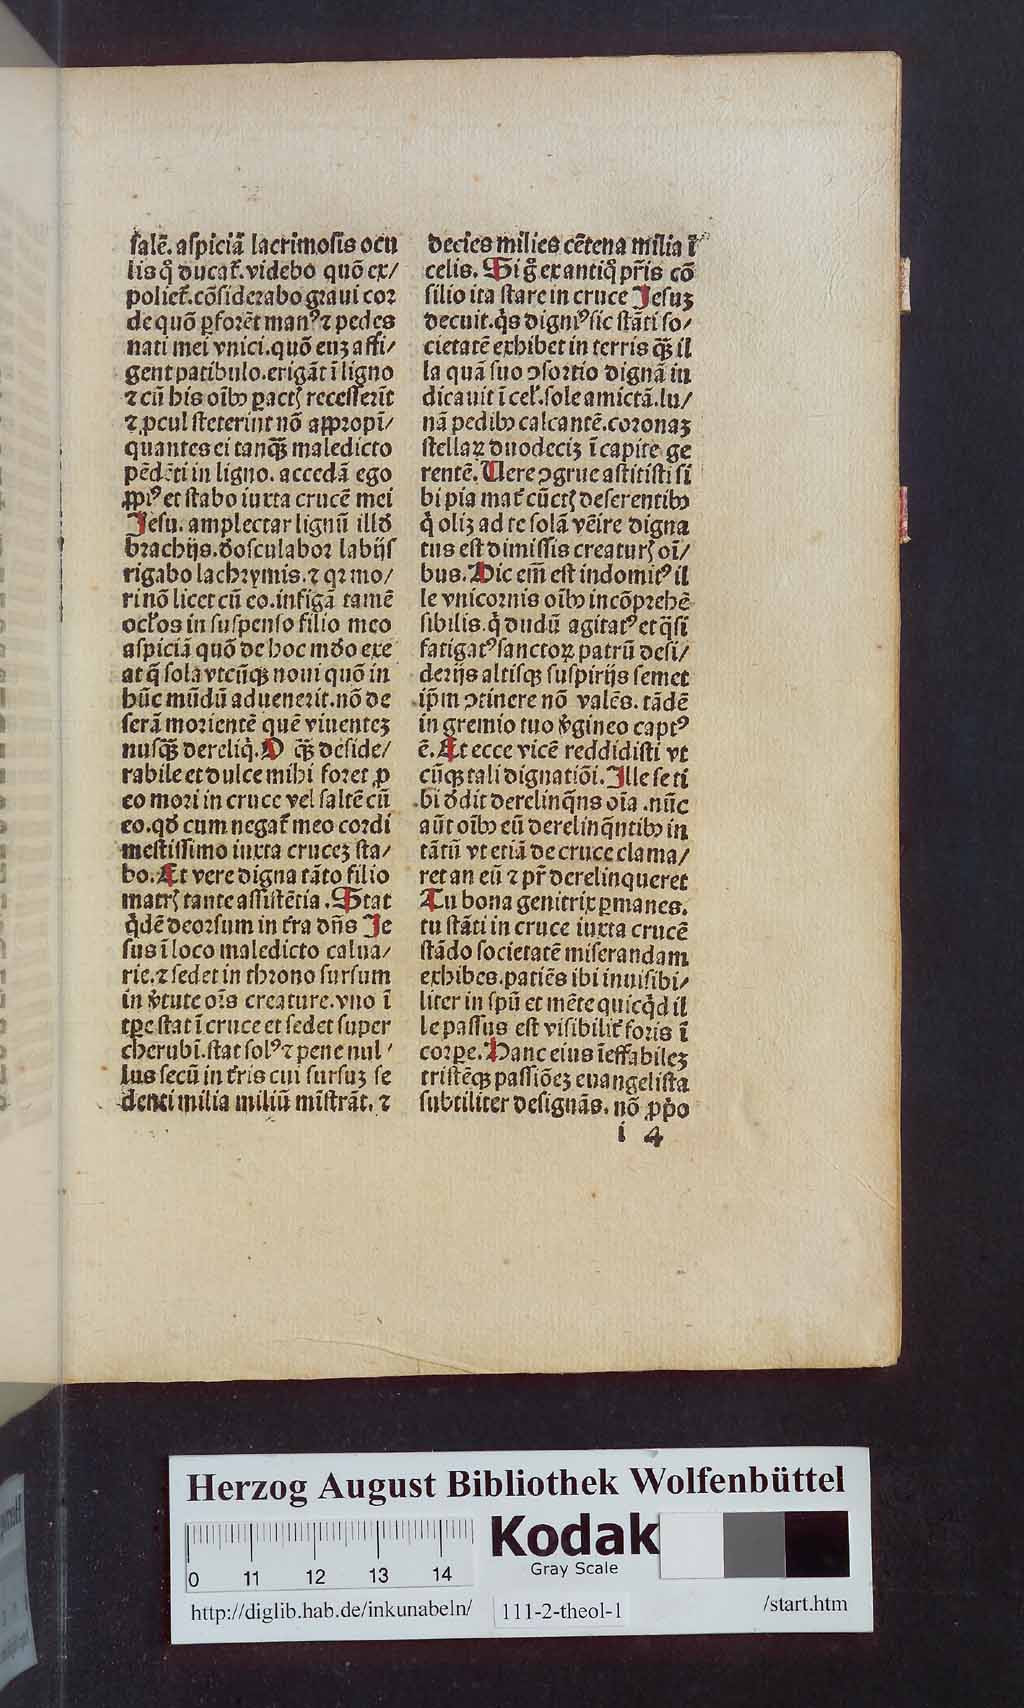 salē. aspiciā lacrimosis ocu
lis qͦ ducat᷑. videbo quō ex/
poliet᷑. cōsiderabo graui cor
de quō ꝑforēt manꝰ ⁊ pedes
nati mei vnici. quō euꝫ affi/
gent patibulo. erigāt ī ligno
⁊ cū his oīb⁹ ꝑactꝭ recesserīt
⁊ ꝓcul steterint nō appropī/
quantes ei tanqꝫ̄ maledicto
pēdēti in ligno. accedā ego
ꝓpiꝰ et stabo iuxta crucē mei
Jesu. amplectar lignū illd̓
brachijs. d̓osculabor labijs
rigabo lachrymis. ⁊ qꝛ mo/
ri nō licet cū eo. infigā tamē
ocl̓os in suspenso filio meo
aspiciā quō de hoc mūdo exe
at q̄ sola vtcūqꝫ noui quō in
hūc mūdū aduenerit. nō de
serā morientē quē viuenteꝫ
nusqꝫ̄ dereliq̇. O qꝫ̄ deside/
rabile et dulce mihi foret ꝓ
eo mori in cruce vel saltē cū
eo. qd̓ cum negat᷑ meo cordi
mestissimo iuxta cruceꝫ sta/
bo. Et vere digna tāto filio
matrꝭ tante assistētia. Stat
q̇dē deorsum in t̓ra dn̄s Je
sus ī loco maledicto calua/
rie. ⁊ sedet in throno sursum
in v̓tute oīs creature. vno ī
tꝑe stat ī cruce et sedet super
cherubī. stat solꝰ ⁊ pene nul/
lus secū in t̓ris cui sursuꝫ se
denti milia miliū mīstrāt. ⁊
decies milies cētena milia ī
celis. Si g̊ ex antiq̊ pr̄is cō
silio ita stare in cruce Jesuꝫ
decuit. q̇s digniꝰ sic stāti so/
cietatē exhibet in terris qꝫ̄ il
la quā suo ↄsortio dignā iu
dicauit ī cel᷑. sole amictā. lu/
nā pedib⁹ calcantē. coronaꝫ
stellaꝝ duodeciꝫ ī capite ge
rentē. Uere ↄgrue astitisti si
bi pia mat᷑ cūctꝭ deserentib⁹
q̇ oliꝫ ad te solā vēire digna
tus est dimissis creaturꝭ oī/
bus. Hic em̄ est indomitꝰ il
le vnicornis oīb⁹ incōprehē
sibilis. q̇ dudū agitatꝰ et q̄si
fatigatꝰ sanctoꝝ patrū desi/
derijs altisqꝫ suspirijs semet
ip̄m ↄtinere nō valēs. tādē
in gremio tuo v̓gineo captꝰ
ē. Et ecce vicē reddidisti vt
cūqꝫ tali dignatiōi. Ille se ti
bi d̓dit derelinq̄ns oīa. nūc
aūt oīb⁹ eū derelinq̄ntib⁹ in
tātū vt etiā de cruce clama/
ret an eū ⁊ pr̄ derelinqueret
Tu bona genitrix ꝑmanes.
tu stāti in cruce iuxta crucē
stādo societatē miserandam
exhibes. patiēs ibi inuisibi/
liter in spū et mēte quicq̇d il
le passus est visibilit᷑ foris ī
corꝑe. Hanc eius īeffabileꝫ
tristēqꝫ passiōeꝫ euangelista
subtiliter designās. nō ꝓpo
i 4
Herzog August Bibliothek Wolfenbüttel
Kodak
Gray Scale
0 11 12 13 14
http://diglib.hab.de/inkunabeln/ 111-2-theol-1 /start.htm